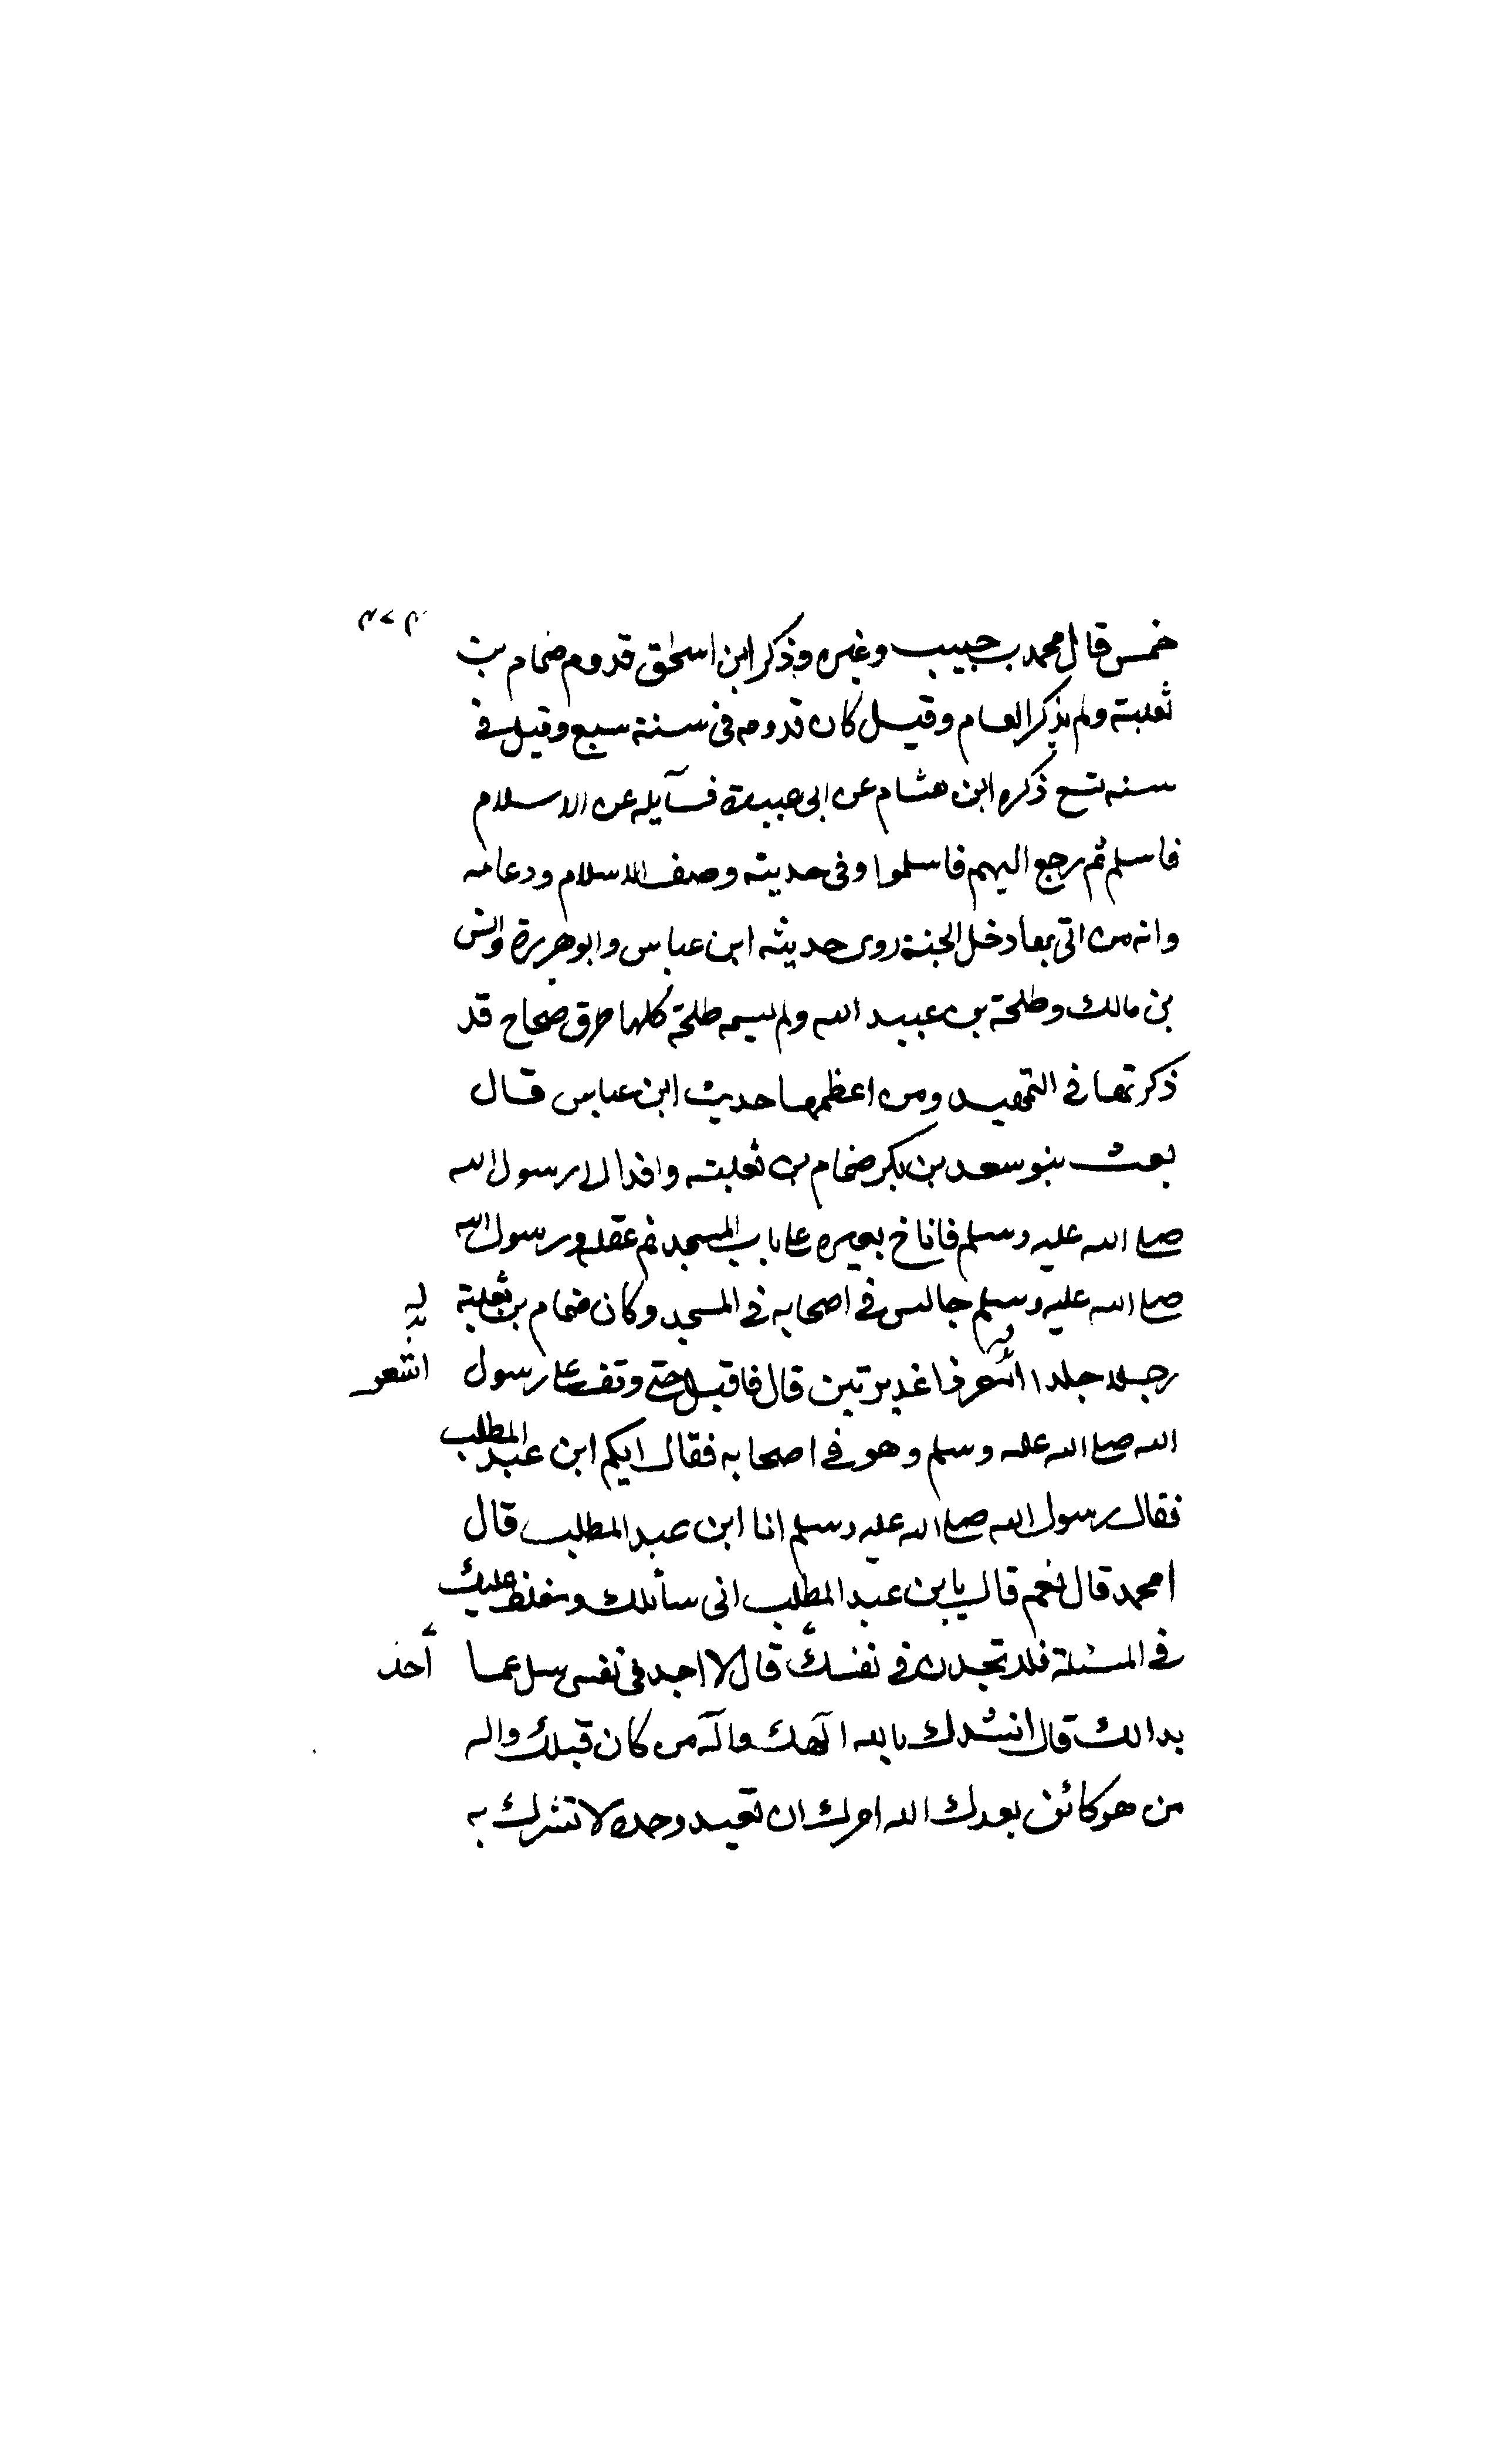 خمس قال محمد بن حبيب وغيره وذكر ابن اسحٰق قدوم ضمام بن
ثعلبة ولم يذكر العام وقيل كان قدومه فى سنة سبع وقيل فى
سنه تسع ذكره ابن هشام عن ابى عبيدة فسآيله عن الاسلام
فاسلم ثم رجع اليهم فاسلموا وفى حديثه وصف الاسلام ودعامه
وانه من اتى بها دخل الجنة روى حديثه ابن عباس وابوهريرة وانس
بن مالك وطلحة بن عبيد الله ولم يسمه طلحة كلها طرق صحاح قد
ذكرتها فى التمهيد ومن اعظمها حديث ابن عباس قال
بعث بنو سعد بن بكر ضمام بن ثعلبته وافدا الى رسول الله
صلى الله عليه وسلم فاناخ بعيره على باب المسجد ثم عقله ورسول الله
صلى الله عليه وسلم جالس فى اصحابه فى المسجد وكان ضمام بن ثعلبة
رجلا جلدا اشعر ذا غديرتين قال فاقبل حتى وقف على رسول
اشعر
الله صلى الله عليه وسلم وهو فى اصحابه فقال ايكم ابن عبد المطلب
فقال رسول الله صلى الله عليه وسلم انا ابن عبد المطلب قال
امحمد قال نعم قال يابن عبد المطلب انى سائلك ومغلظ عليك
فى المسئلة فلا تجدن فى نفسك قال لا اجد فى نفسى سل عما
أخذ
بدالك قال انشدك بالله الٓهك والٓه من كان قبلك واله
من هو كائن بعدك الله امرك ان تعبد وحده لا تشرك به